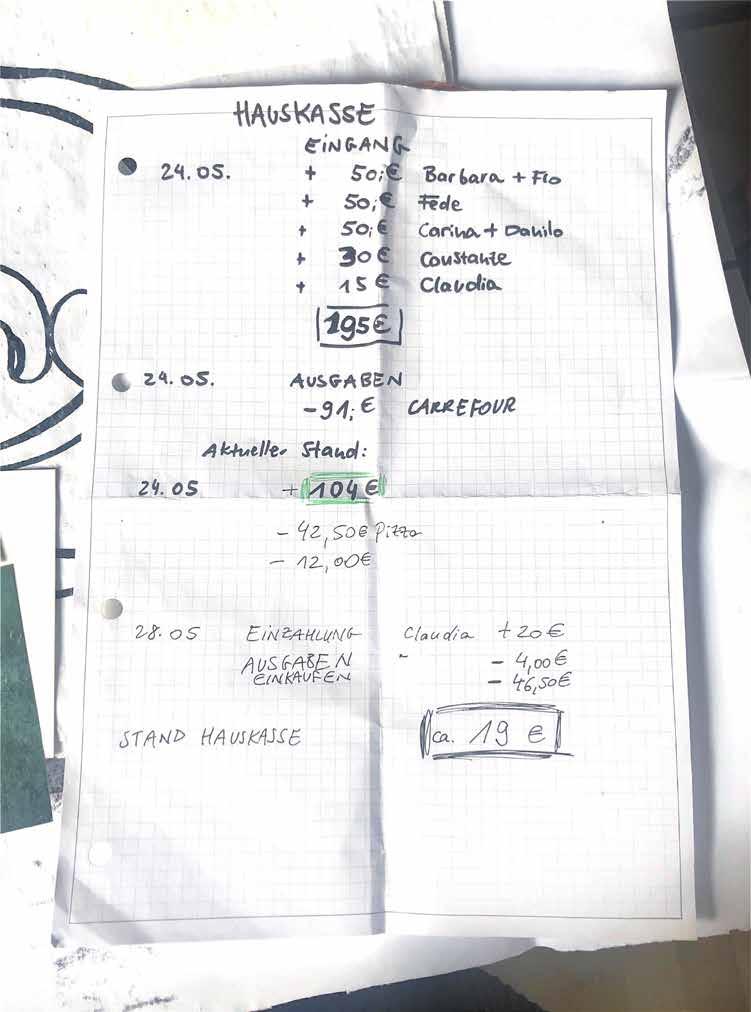 HAUSKASSE
EINGANG
24.05. + 50,-€ Barbara + Flo
+ 50,-€ Fede
+ 50,-€ Carina + Danilo
+ 30€ Constanze
+ 15€ Claudia
195€
24.05. AUSGABEN
-91,-€ CARREFOUR
Aktueller Stand:
24.05 + 104€
- 42,50€ Pizza
- 12,00€
28.05 EINZAHLUNG Claudia +20€
AUSGABEN - 4,00€
EINKAUFEN - 46,50€
STAND HAUSKASSE ca. 19 €